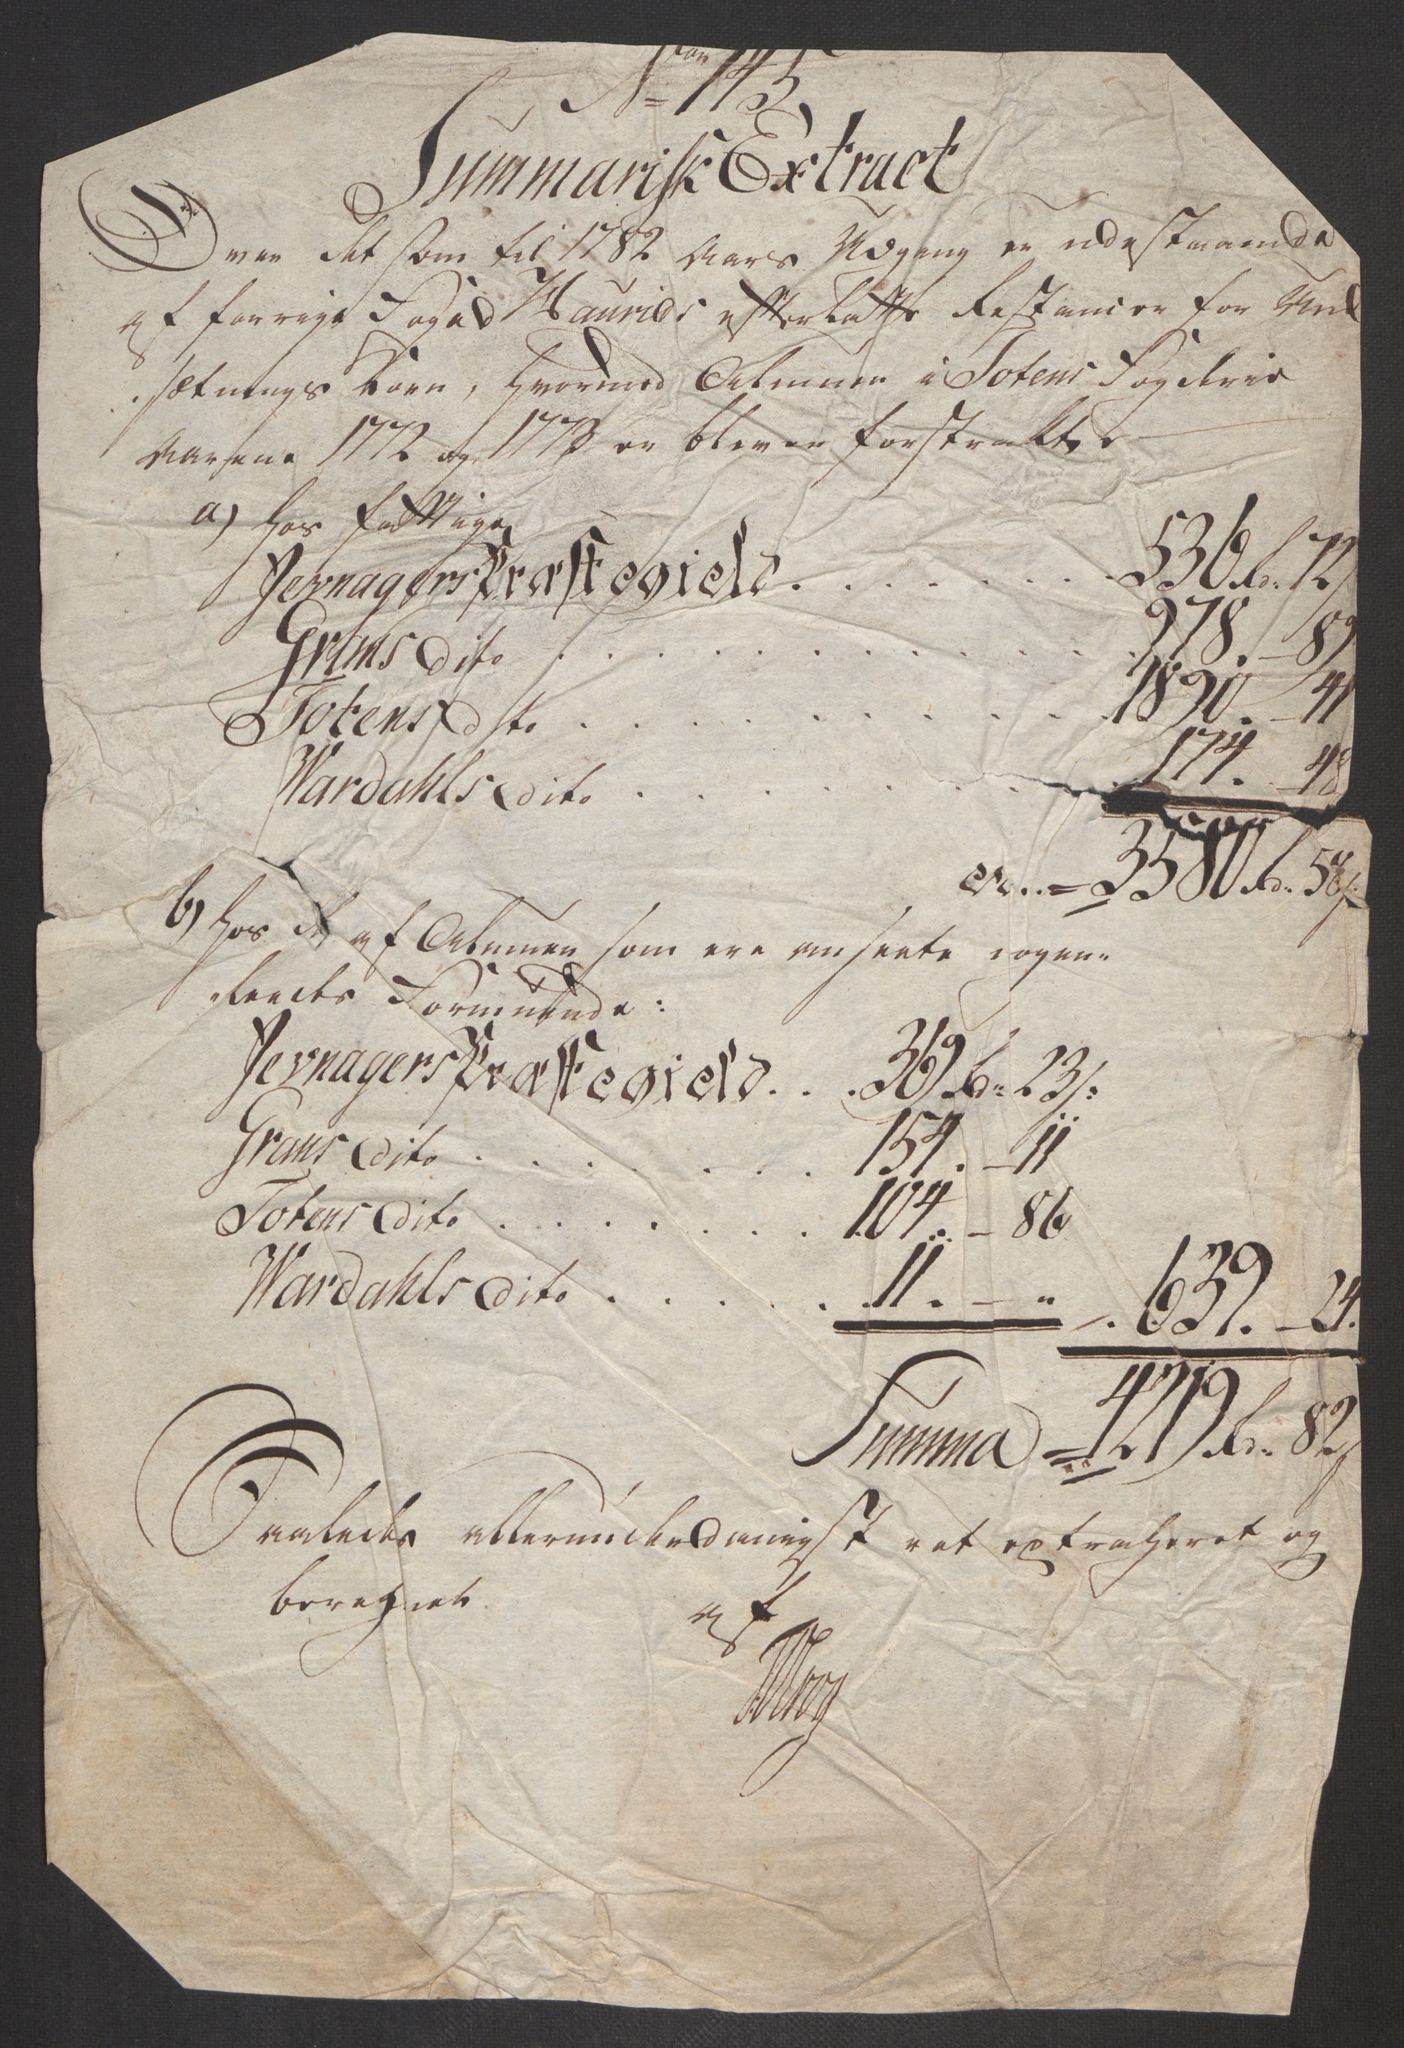 No 145
Summarisk Extract
Over det som til 1782 Aars Udgang er udestaaende
af forrige Foged Haurids efterladte Restancer for Und
sætnings Korn, hvormed Almuen i Totens Fogderie
Aarene 1772 og 1773 er bleven forstrakt
a) hos fattige
Jevnagers Præstegield . . . . . . . 536 Rd. 72 s
Grans dito . . . . . . . . . . . . 978. - 89
Totens dito . . . . . . . . . . . 1890. - 41
Wardahls dito . . . . . . . . . 174. - 48
er . . = 3580 Rd. 58 s.
b) hos de af Almuen som ere anseete
Formuende:
Jevnagers Præstegield . . . 369 Rd. 23 s:
Grans dito . . . . . . . . 154. - 11
Totens dito . . . . . . . . 104. - 86
Wardahls dito . . . . . . 11. - " . 639. - 24.
Summa = 4219 Rd. 82 s
Saaledes allerunderdanigst ret extraheret og
beregnet af